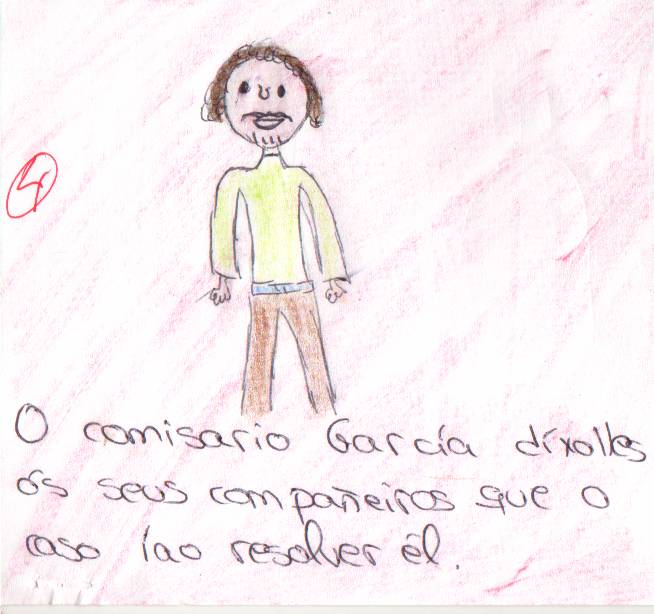 4
O comisario García díxolles
ós seus compañeiros que o
caso íao resolver él.